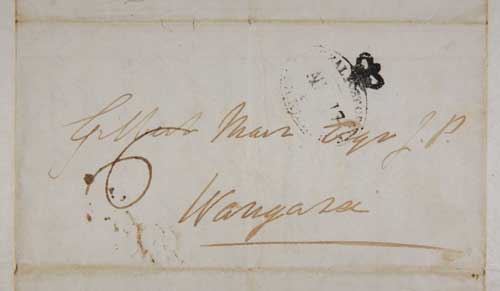 Gilbert Mair Esqr J.P.
6
Wangarei